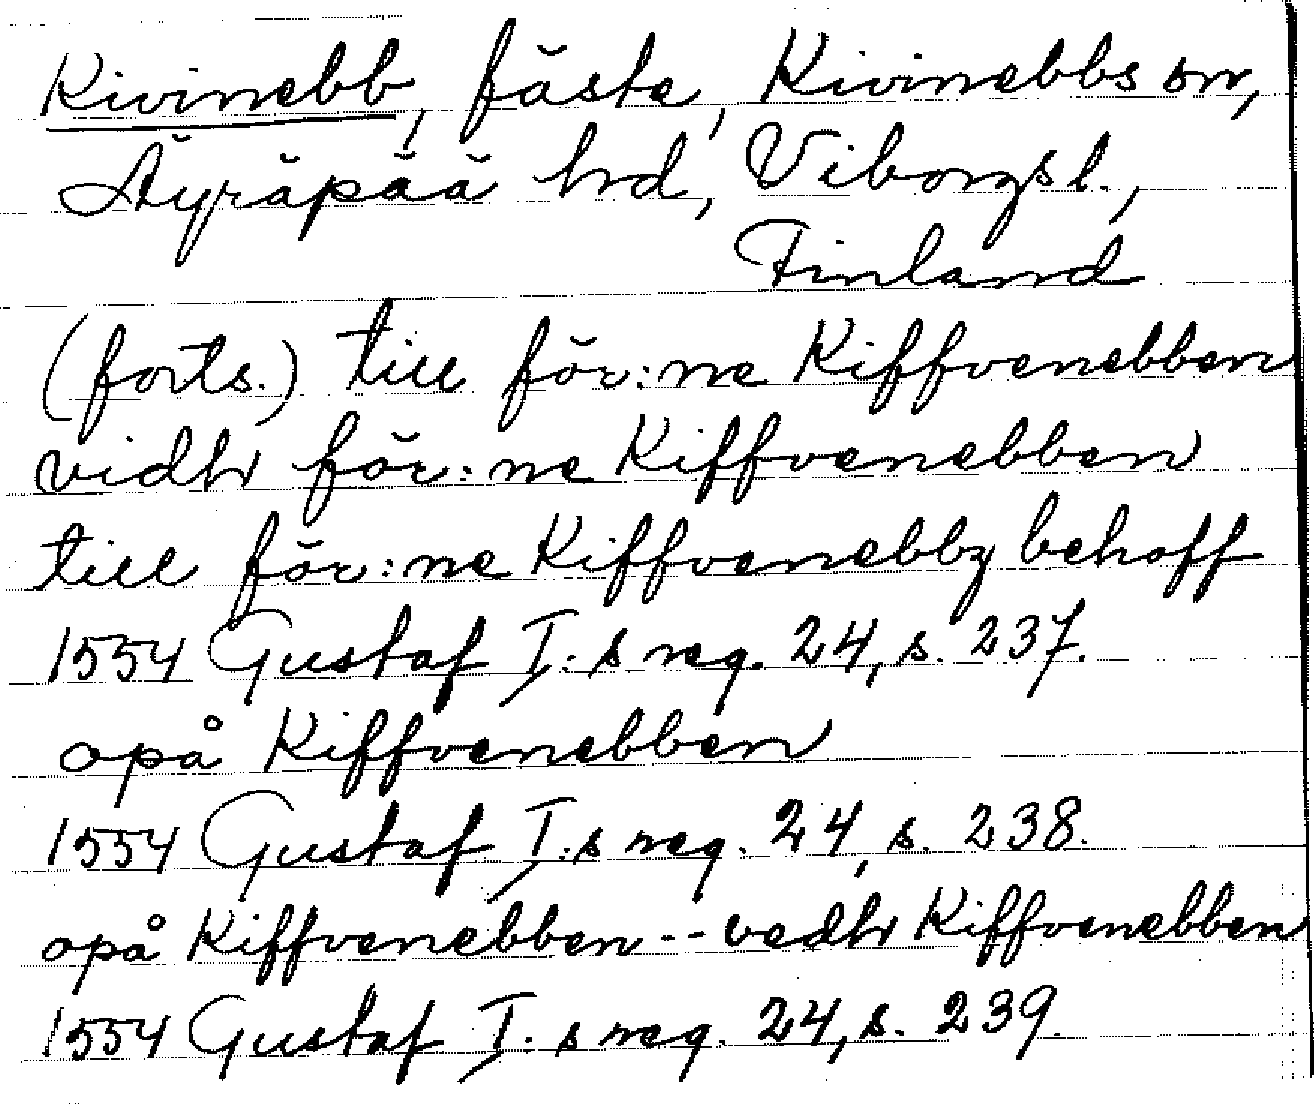 Kivinebb, fäste, Kivinebbs sn,
Äyräpää hrd, Viborgs l.,
Finland
(forts.) till för:ne Kiffvenebben
vidhr för:ne Kiffvenebben
till för:ne Kiffvenebby behoff
1554 Gustaf I:s reg. 24, s. 237.
opå Kiffvenebben
1554 Gustaf I:s reg. 24, s. 238.
opå Kiffvenebben -- vedhr Kiffvenebben
1554 Gustaf I:s reg. 24, s. 239.